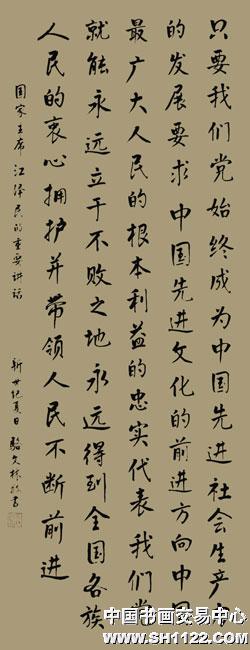 只要我们党始终成为中国先进社会生产力
的发展要求中国先进文化的前进方向中国
最广大人民的根本利益的忠实代表我们党
就能永远立于不败之地永远得到全国各族
人民的衷心拥护并带领人民不断前进
国家主席江泽民的重要讲话
新世纪夏日骆文林书
中国书画交易中心
www.SH1122.com